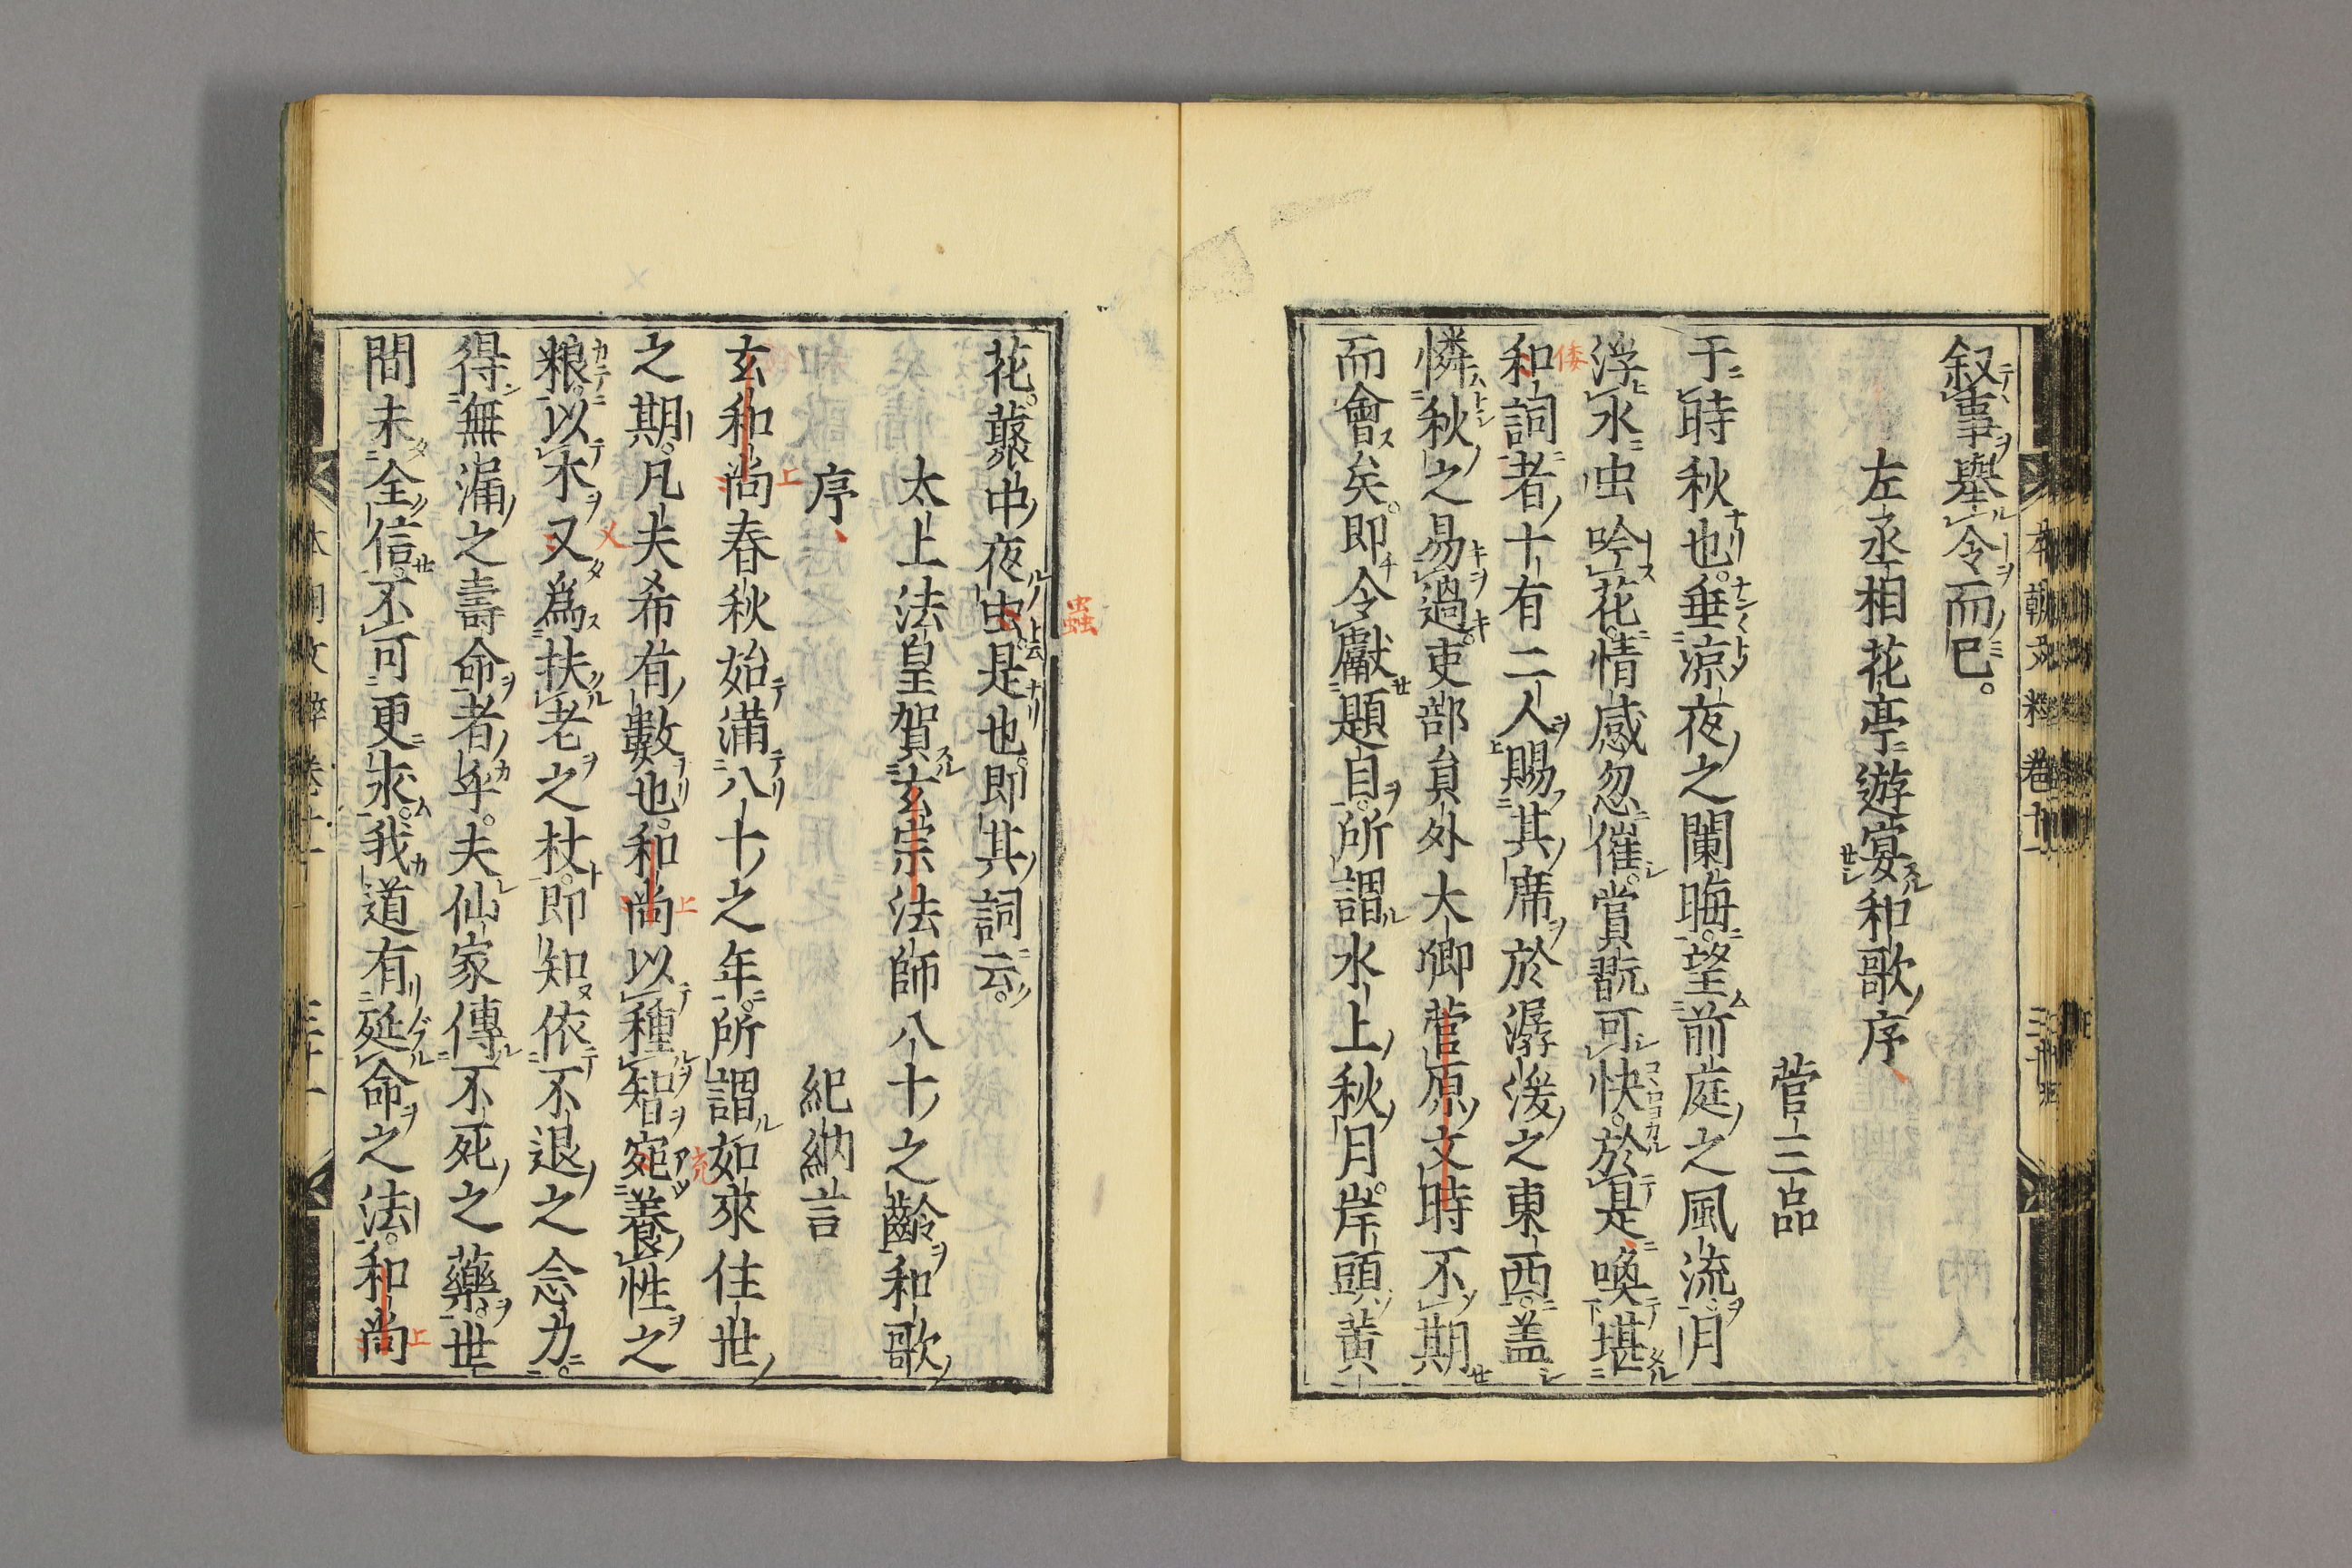 叙事舉令而已。
左丞相花亭遊宴和歌序
菅三品
于時秋也。垂涼夜之闌晦。望前庭之風流。月
浮水虫吟花。情感忽催。賞翫可快。於是喚堪
和詞者十有二人賜其席於潺湲之東西。盖
憐秋之易過。吏部員外大卿菅原文時不期
而會矣。即令獻題自。所謂水上秋月。岸頭黄
花。藂中夜虫。是也。即其詞云。
太上法皇賀玄宗法師八十之齡和歌
序
紀納言
玄和尚春秋始滿八十之年。所謂如來住世
之期。凡夫希有數也。和尚以種智宛養性之
粮。以木又為扶老之杖。即知依不退之念力。
得無漏之壽命者年。夫仙家傳不死之藥。世
間未全信。不可更求。我道有延命之法。和尚
倭
蟲
上
上
充
上
本朝文粹卷十一
本朝文粹卷十一
三十一